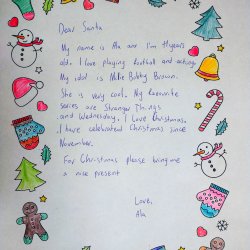 Dear Santa
My name is Ala and I'm 11 years
old. I love playing football and acting.
My idol is Millie Bobby Brown.
She is very cool. My favourite
series are Stranger Things
and Wednesday. I love Christmas.
I have celebrated Christmas since
November.
For Christmas please bring me
a nice present
Love,
Ala